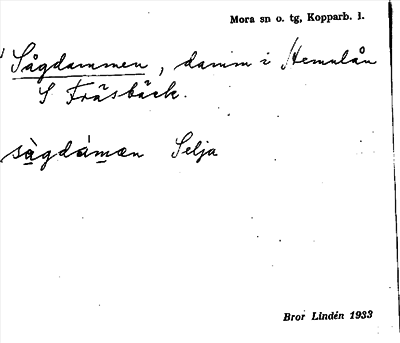 Mora sn o. tg, Kopparb. l.
Sågdammen, damm i Hemulån
S Fräsbäck.
sàgdámæn Selja
Bror Lindén 1933